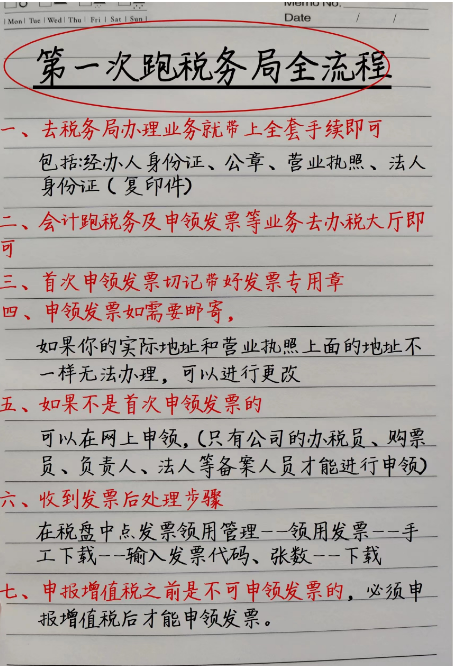 Memo No.
Mon Tue Wed Thu Fri Sat Sun
Date / /
第一次跑税务局全流程
一、去税务局办理业务就带上全套手续即可
包括:经办人身份证、公章、营业执照、法人
身份证(复印件)
二、会计跑税务及申领发票等业务去办税大厅即
可
三、首次申领发票切记带好发票专用章
四、申领发票如需要邮寄,
如果你的实际地址和营业执照上面的地址不
一样无法办理,可以进行更改
五、如果不是首次申领发票的
可以在网上申领,(只有公司的办税员、购票
员、负责人、法人等备案人员才能进行申领)
六、收到发票后处理步骤
在税盘中点发票领用管理--领用发票--手
工下载--输入发票代码、张数--下载
七、申报增值税之前是不可申领发票的,必须申
报增值税后才能申领发票。